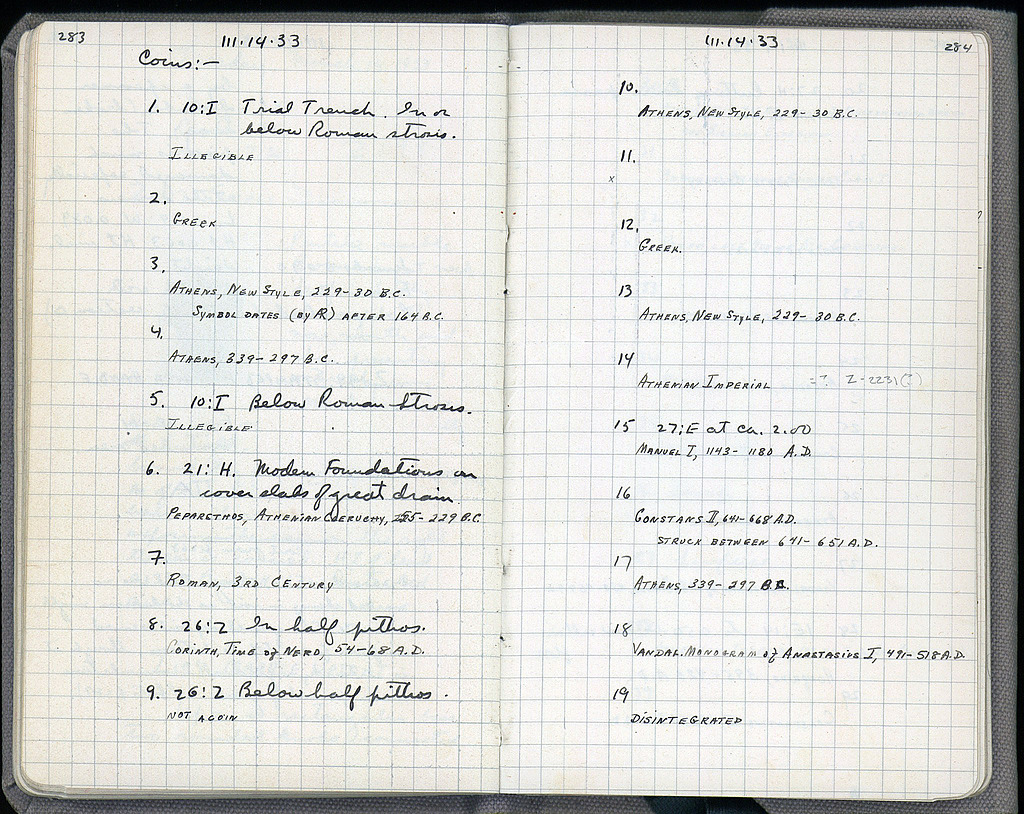 283
III·14·33
Coins:—
1. 10:I Trial Trench. In or
below Roman strosis.
ILLEGIBLE
2.
GREEK
3.
ATHENS, NEW STYLE, 229-30 B.C.
SYMBOL DATES (BY AR) AFTER 164 B.C.
4.
ATHENS, 339-297 B.C.
5. 10:I Below Roman Strosis.
ILLEGIBLE
6. 21:H. Modern Foundations on
cover slabs of great drain.
PEPARETHOS, ATHENIAN CLERUCHY, 255-229 B.C.
7.
ROMAN, 3RD CENTURY
8. 26:Z In half pithos.
CORINTH, TIME of NERO, 54-68 A.D.
9. 26:Z Below half pithos.
NOT A COIN
III·14·33
284
10.
ATHENS, NEW STYLE, 229-30 B.C.
11.
x
12.
GREEK.
13
ATHENS, NEW STYLE, 229-30 B.C.
14
ATHENIAN IMPERIAL =? Z-2231(?)
15 27:E at ca. 2.00
MANUEL I, 1143-1180 A.D.
16
CONSTANS II, 641-668 A.D.
STRUCK BETWEEN 641-651 A.D.
17
ATHENS, 339-297 B.C.
18
VANDAL. MONOGRAM of ANASTASIUS I, 491-518 A.D.
19
DISINTEGRATED